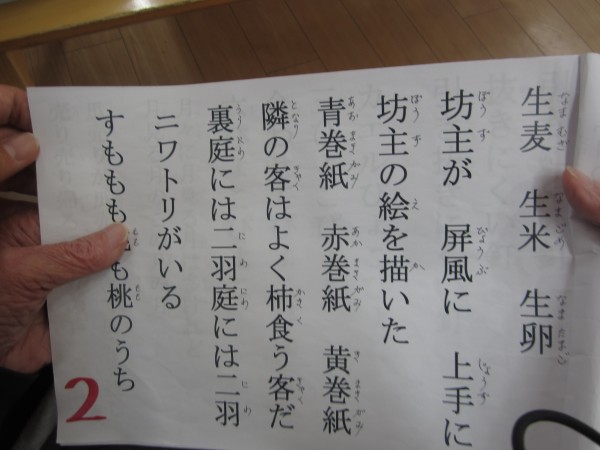 生麦 生米 生卵
坊主が 屏風に 上手に
坊主の絵を描いた
青巻紙 赤巻紙 黄巻紙
隣の客はよく柿食う客だ
裏庭には二羽庭には二羽
ニワトリがいる
すももも も桃のうち
2